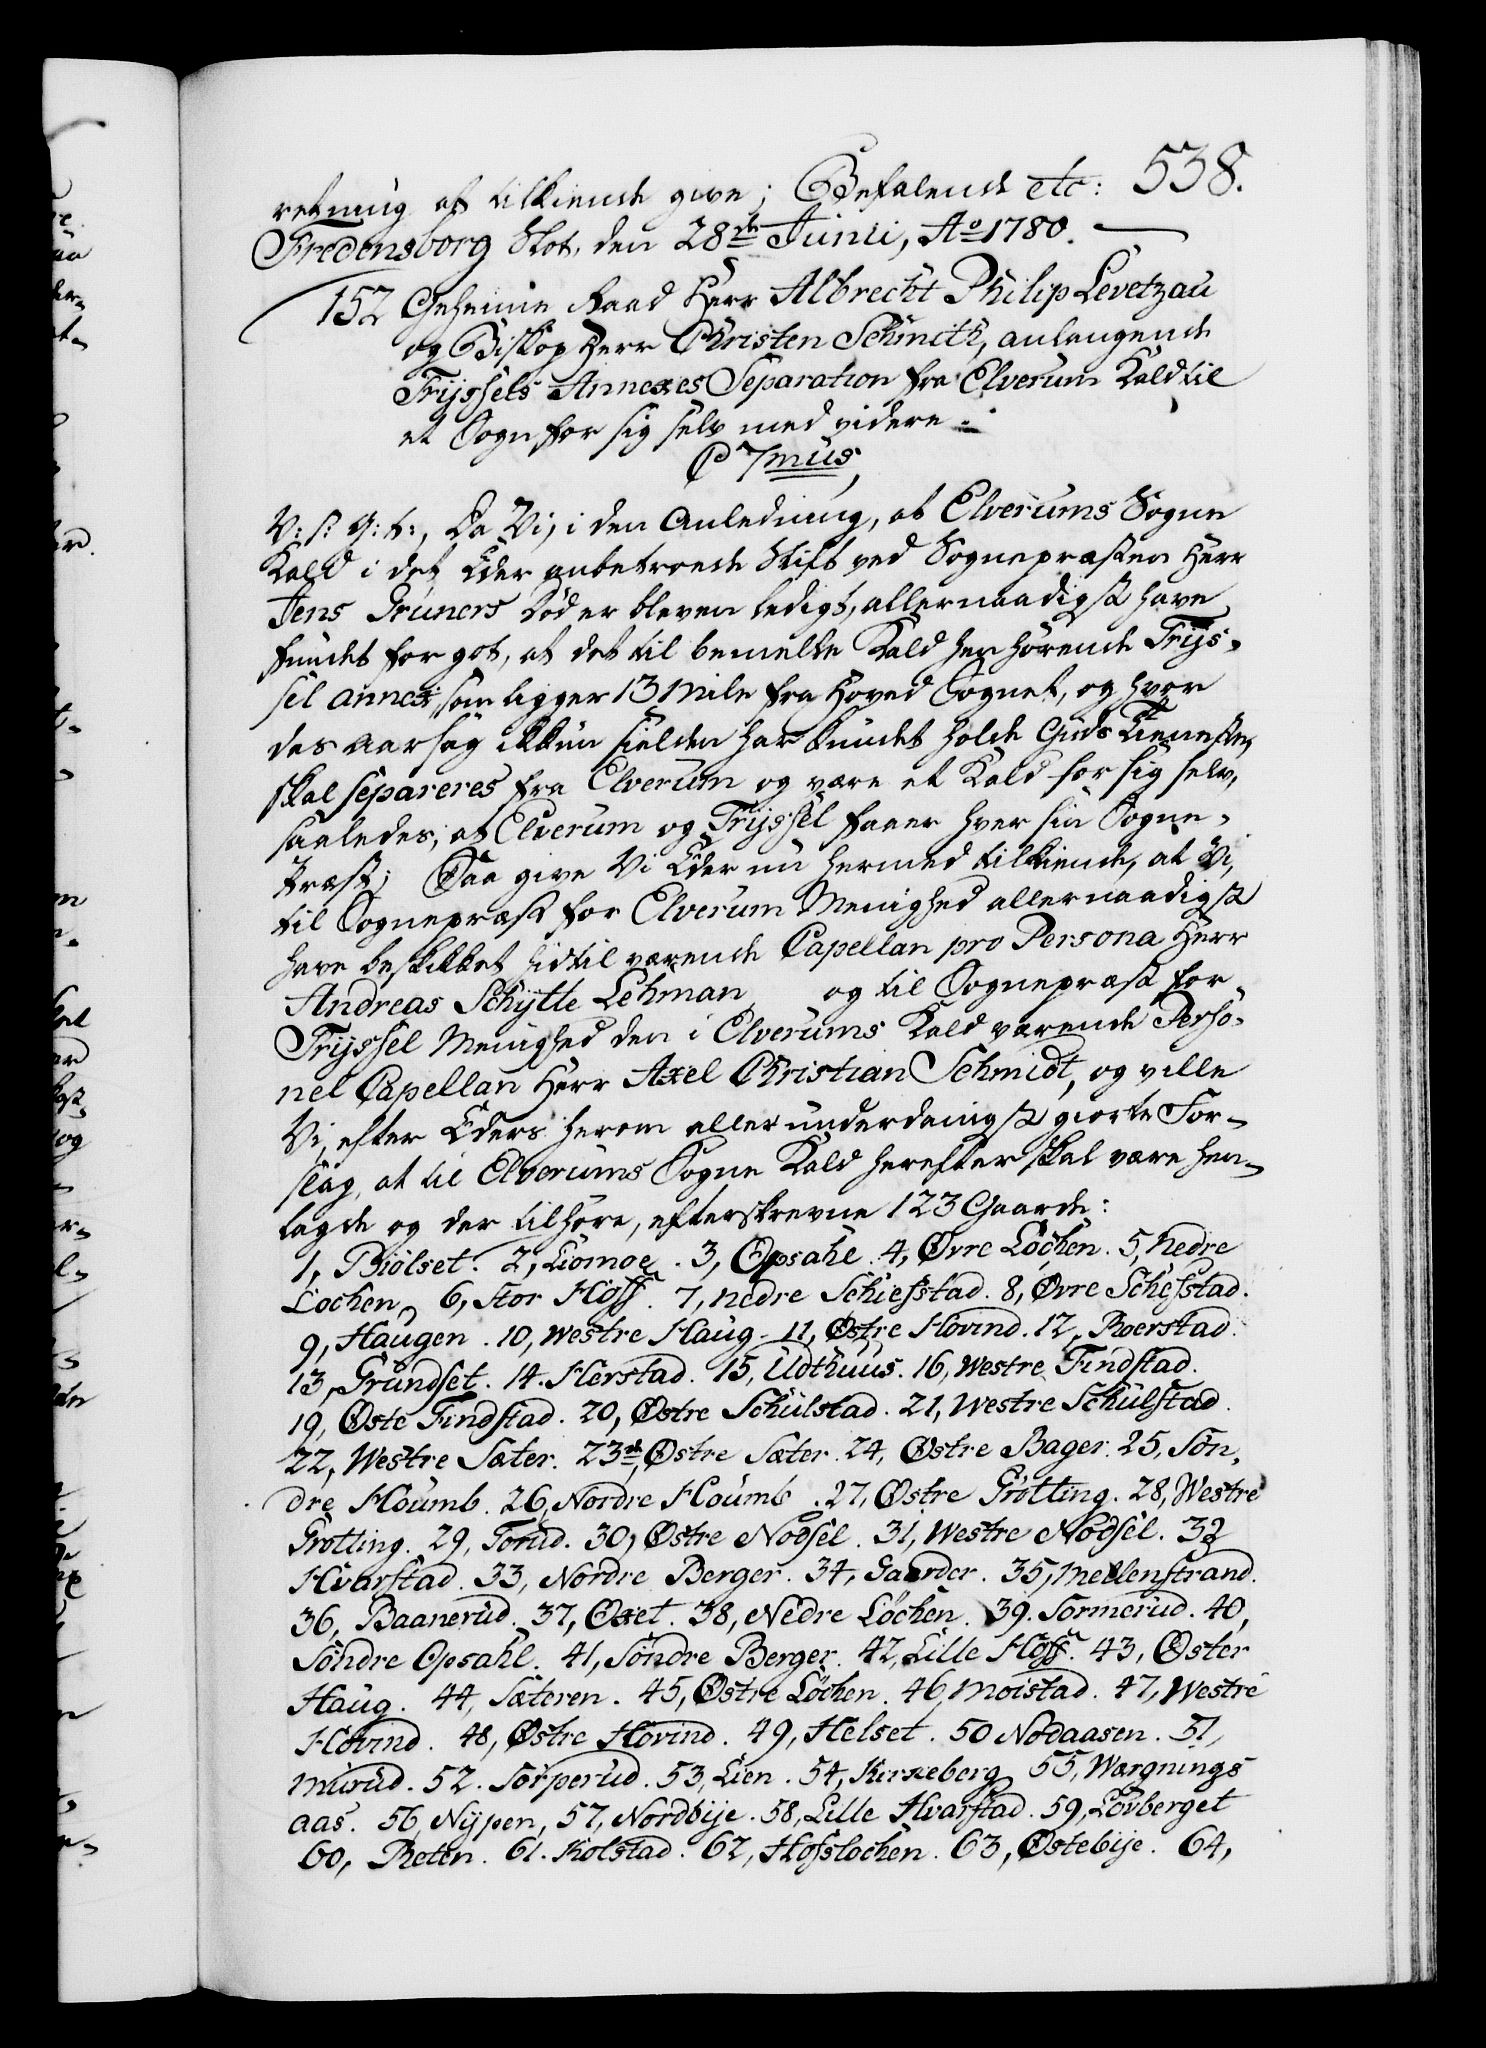 538.
retning at tilkiende give; Befalende etc:
Fredensborg Slot, den 28de Junii, Ao 1780.
152 Geheime Raad Herr Albrecht Philip Levetzau
og Biskop Herr Christen Schmith, anlangende
Trÿssels Annexes Separation fra Elverum Kald til
et Sogn for sig selv med videre.
C 7mus,
V: S: G: T:, Da Vi, i den Anledning, at Elverums Sogne
Kald i det Eder anbetroede Stift ved Sognepræsten Herr
Jens Gruners Død er bleven ledigt, allernaadigst have
fundet for got, at det til bemelte Kald henhørende Trÿs-
sel annex, som ligger 13 Mile fra Hoved Sognet, og hvor
des aarsag ikkun sielden har kundet holde Guds Tieneste,
skal separeres fra Elverum og være et Kald for sig selv,
saaledes, at Elverum og Trÿssel faaer hver sin Sogne-
Præst; Saa give Vi Eder nu hermed tilkiende, at Vi,
til Sognepræst for Elverum Menighed allernaadigst
have beskikket hidtil værende Capellan pro Persona Herr
Andreas Schytte Lehman, og til Sognepræst for
Trÿssel Menighed den i Elverums Kald værende Perso-
nel Capellan Herr Axel Christian Schmidt, og ville
Vi, efter Eders herom allerunderdanigst giorte For-
slag, at til Elverums Sogne Kald herefter skal være hen-
lagde og der tilhøre, efterskrevne 123 Gaarde:
1, Biölset. 2, Liomoe. 3, Opsahl. 4, Øvre Löchen. 5, Nedre
Lochen, 6, Stor Hoff. 7, Nedre Schiefstad. 8, Øvre Schefstad.
9, Haugen. 10, Westre Haug. 11, Østre Hovind. 12, Roerstad.
13, Grundset. 14. Herstad. 15, Udthuus. 16, Westre Findstad.
19, Øste Findstad. 20, Østre Schulstad. 21, Westre Schulstad.
22, Westre Sæter. 23de, Østre Sæter. 24, Østre Bager. 25, Søn-
dre Houmb. 26, Nordre Houmb. 27, Østre Grøtting. 28, Westre
Grøtting. 29, Torud. 30, Østre Nodsel. 31, Westre Nodsel. 32
Hvarstad. 33, Nordre Berger. 34, Gaarder. 35, Mellenstrand.
36, Baanerud. 37, Oxet. 38, Nedre Löchen. 39. Sormerud. 40,
Söndre Opsahl. 41, Söndre Berger. 42, Lille Hoff. 43, Øster
Haug. 44, Sæteren. 45, Østre Löchen. 46, Moistad. 47, Westre
Hovind. 48, Østre Hovind. 49, Helset. 50 Nodaasen. 51,
Murud. 52. Sorperud. 53, Lien. 54, Kirkeberg, 55, Wærgnings
aas. 56, Nÿpen, 57, Nordbÿe. 58, Lille Hvarstad. 59, Lövberget
60, Roten. 61. Kolstad. 62, Hofslochen. 63, Østebÿe. 64,